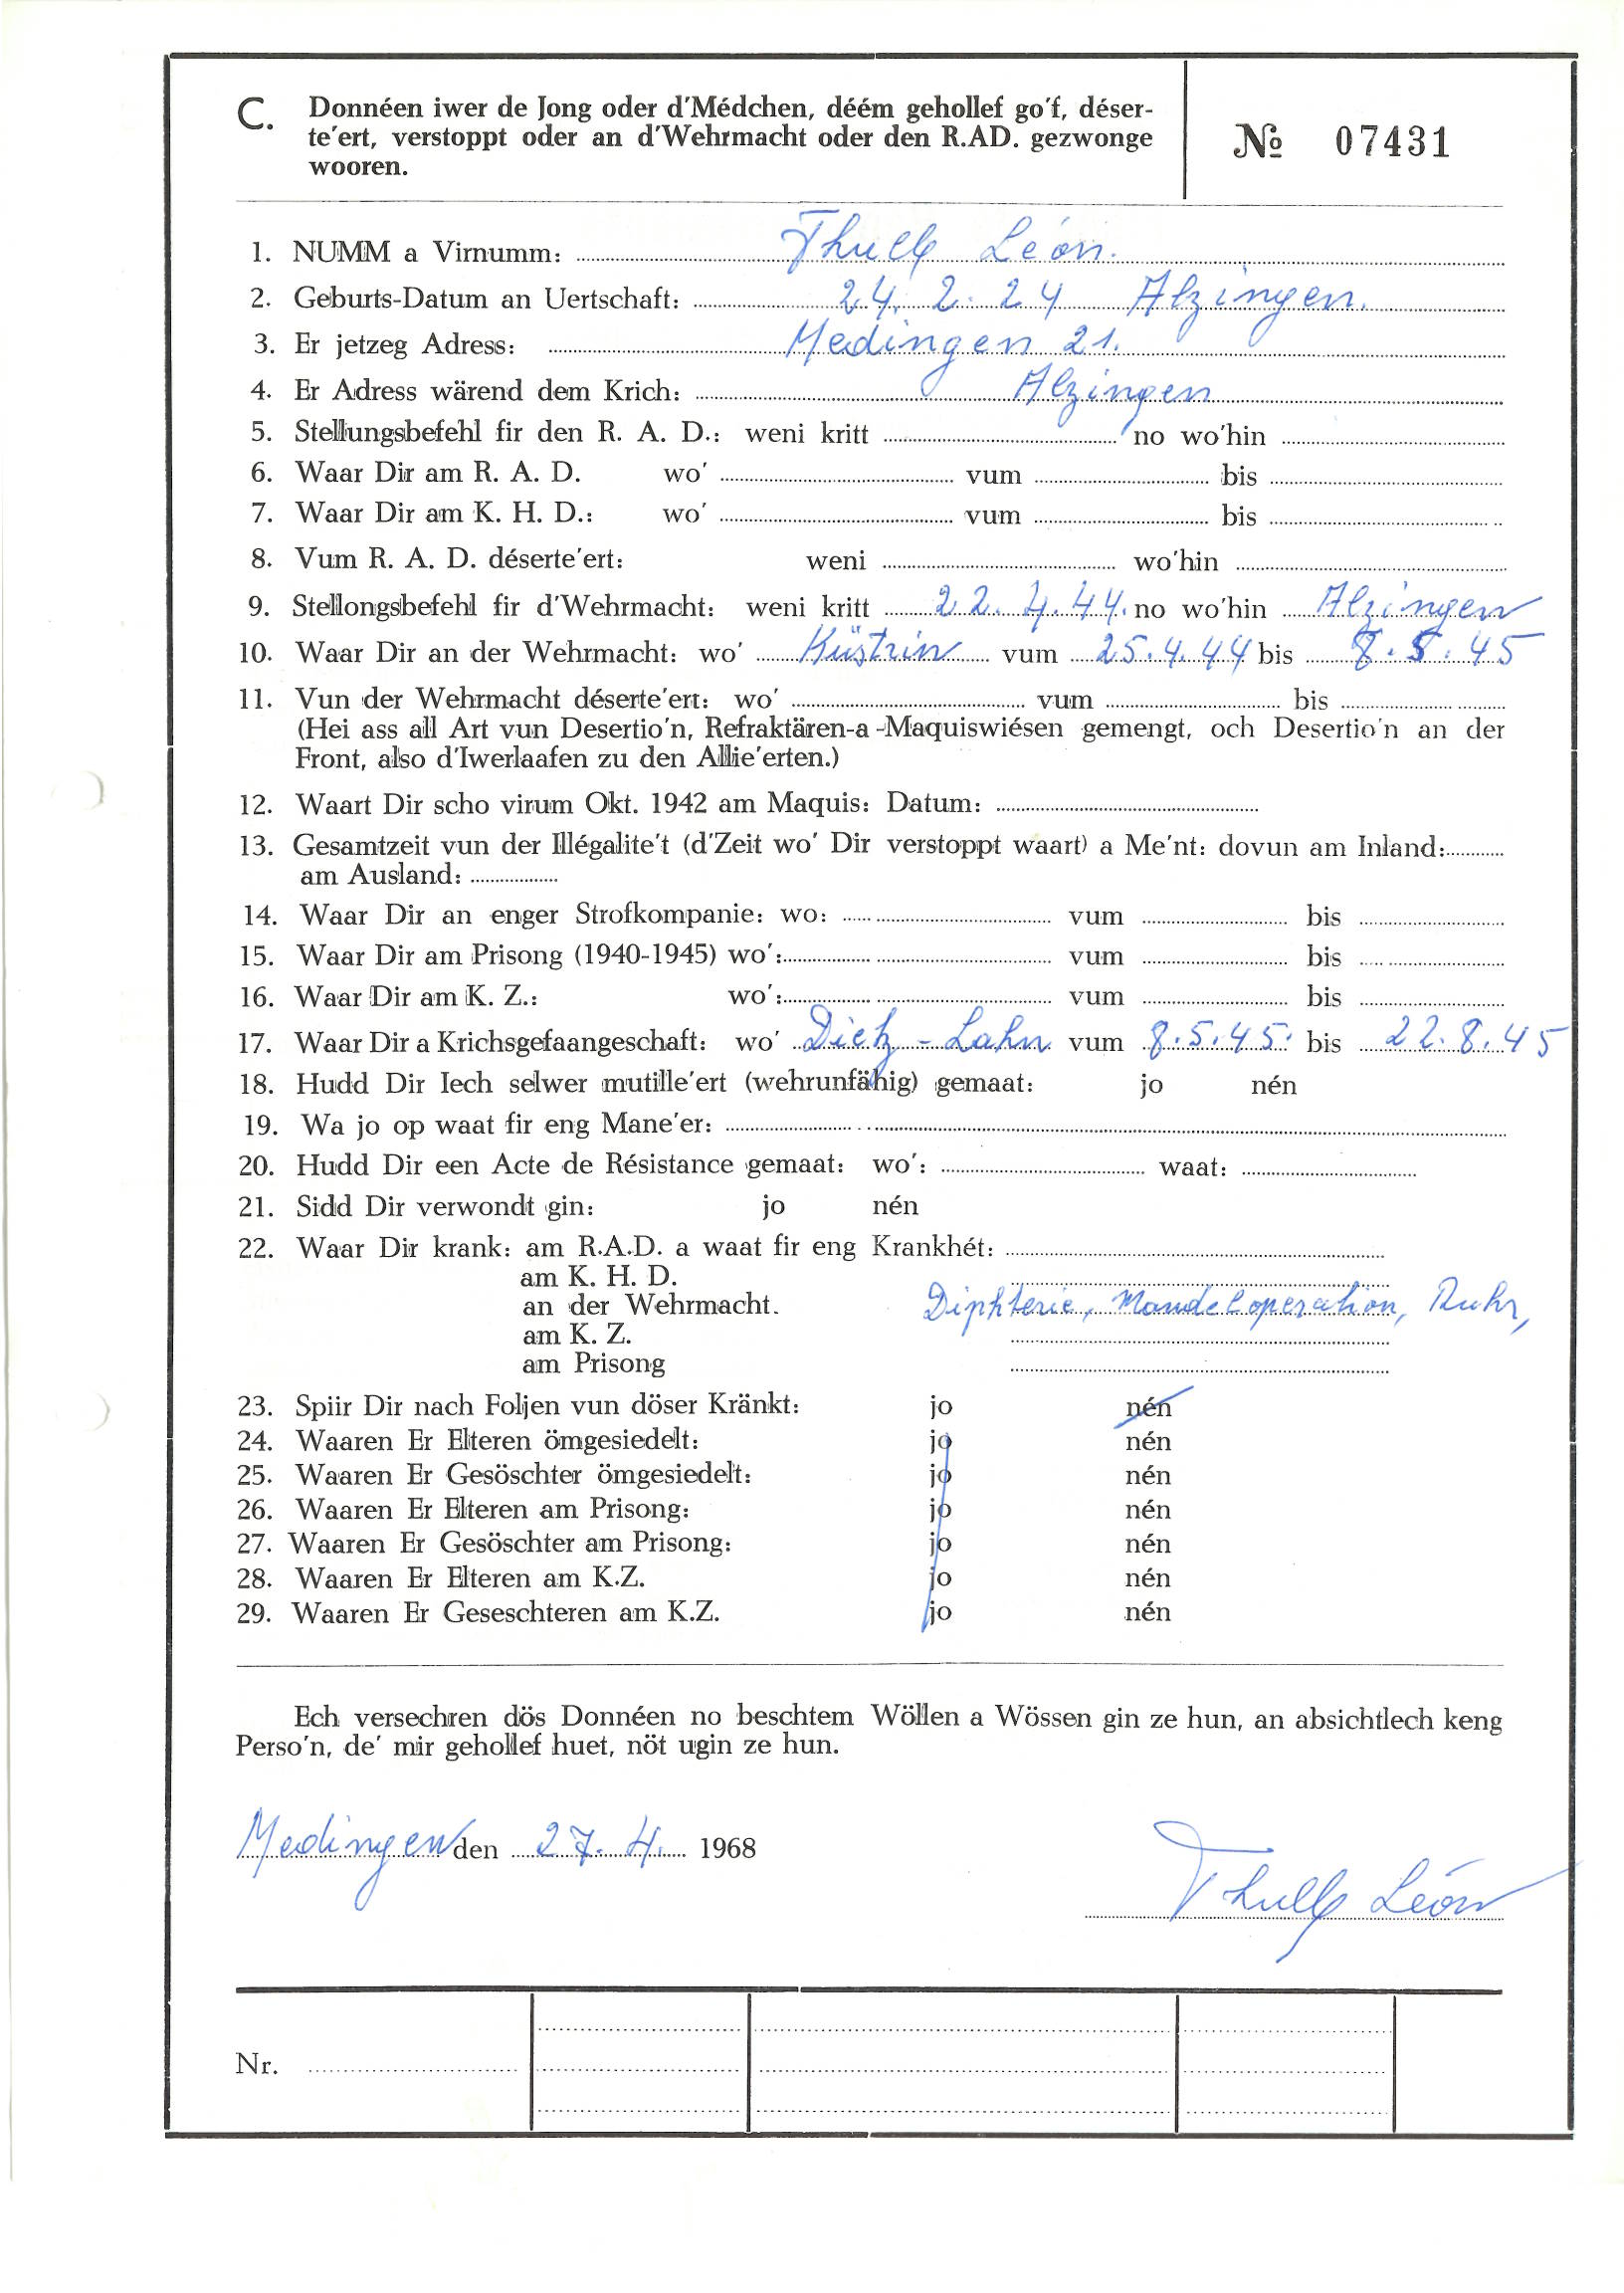 C. Donnéen iwer de Jong oder d'Médchen, déém gehollef go'f, déser-
te'ert, verstoppt oder an d'Wehrmacht oder den R.AD. gezwonge
wooren.
№ 07431
1. NUMM a Virnumm: Thull Léon.
2. Geburts-Datum an Uertschaft: 24. 2. 24 Alzingen.
3. Er jetzeg Adress: Medingen 21.
4. Er Adress wärend dem Krich: Alzingen
5. Stellungsbefehl fir den R. A. D.: weni kritt no wo'hin
6. Waar Dir am R. A. D. wo' vum bis
7. Waar Dir am K. H. D.: wo' vum bis
8. Vum R. A. D. déserte'ert: weni wo'hin
9. Stellongsbefehl fir d'Wehrmacht: weni kritt 22.4.44. no wo'hin Alzingen
10. Waar Dir an der Wehrmacht: wo' Küstrin vum 25.4.44 bis 8.5.45
11. Vun der Wehrmacht déserte'ert: wo' vum bis
(Hei ass all Art vun Desertio'n, Refraktären-a-Maquiswiésen gemengt, och Desertio'n an der
Front, also d'Iwerlaafen zu den Allie'erten.)
12. Waart Dir scho virum Okt. 1942 am Maquis: Datum:
13. Gesamtzeit vun der Illégalite't (d'Zeit wo' Dir verstoppt waart) a Me'nt: dovun am Inland:
am Ausland:
14. Waar Dir an enger Strofkompanie: wo: vum bis
15. Waar Dir am Prisong (1940-1945) wo': vum bis
16. Waar Dir am K. Z.: wo': vum bis
17. Waar Dir a Krichsgefaangeschaft: wo' Dietz - Lahn vum 8.5.45. bis 22.8.45
18. Hudd Dir Iech selwer mutille'ert (wehrunfähig) gemaat: jo nén
19. Wa jo op waat fir eng Mane'er:
20. Hudd Dir een Acte de Résistance gemaat: wo': waat:
21. Sidd Dir verwondt gin: jo nén
22. Waar Dir krank: am R.A.D. a waat fir eng Krankhét:
am K. H. D.
an der Wehrmacht. Diphterie, Mandeloperation, Ruhr,
am K. Z.
am Prisong
23. Spiir Dir nach Foljen vun döser Kränkt: jo nén
24. Waaren Er Elteren ömgesiedelt: jo nén
25. Waaren Er Gesöschter ömgesiedelt: jo nén
26. Waaren Er Elteren am Prisong: jo nén
27. Waaren Er Gesöschter am Prisong: jo nén
28. Waaren Er Elteren am K.Z. jo nén
29. Waaren Er Geseschteren am K.Z. jo nén
Ech versechren dös Donnéen no beschtem Wöllen a Wössen gin ze hun, an absichtlech keng
Perso'n, de' mir gehollef huet, nöt ugin ze hun.
Medingen den 27. 4. 1968
Thull Léon
Nr.